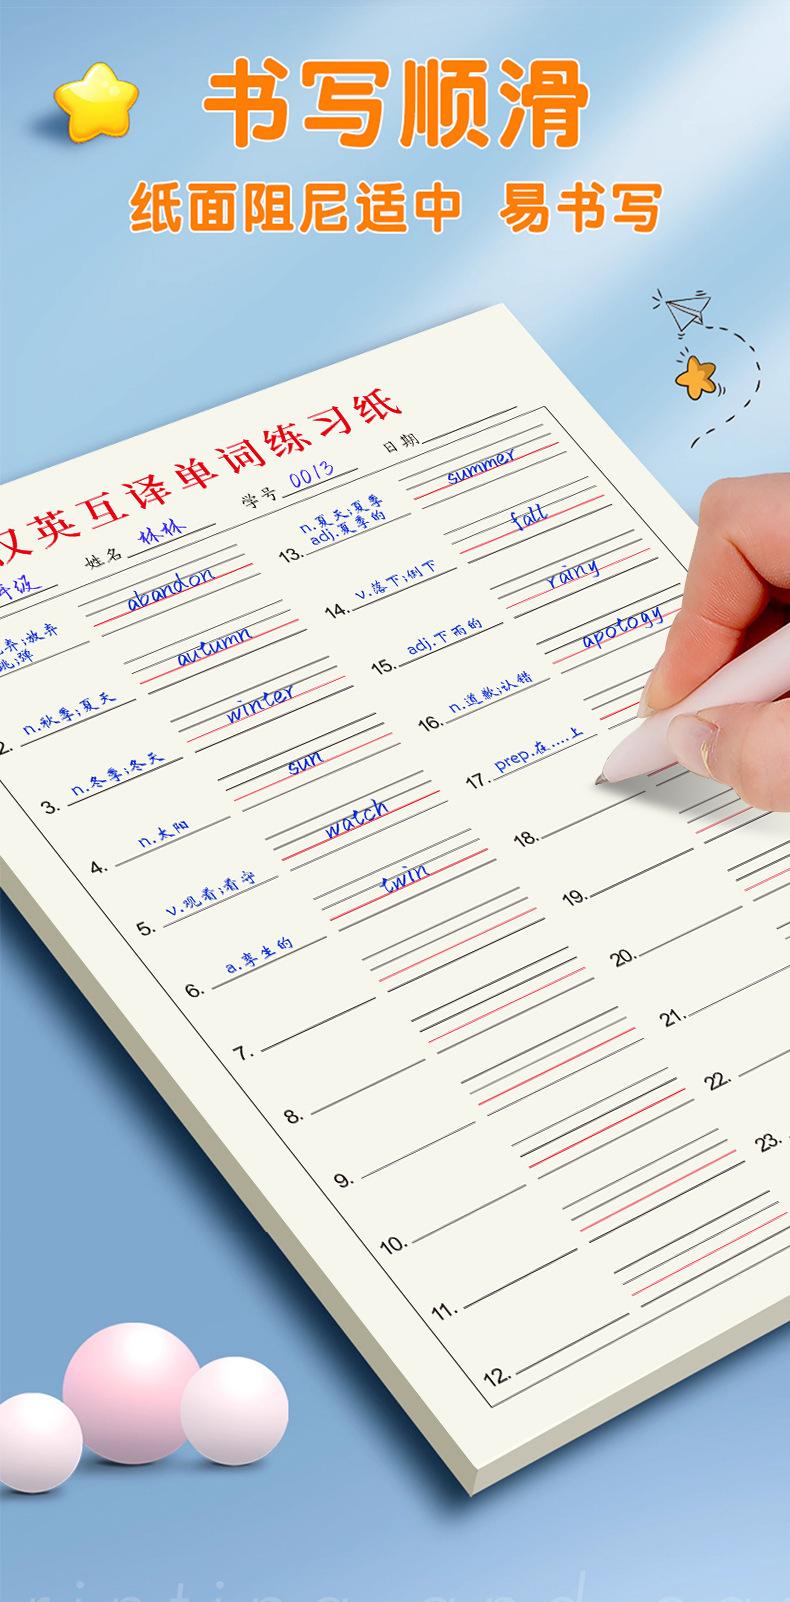 书写顺滑
纸面阻尼适中 易书写
汉英互译单词练习纸
年级 姓名 林林 学号 0013 日期
弃;放弃 abandon
2. n.秋季;夏天 autumn
3. n.冬季;冬天 winter
4. n.太阳 sun
5. v.观看;看守 watch
6. a.孪生的 twin
7.
8.
9.
10.
11.
12.
13. n.夏天;夏季 summer
adj.夏季的
14. v.落下;倒下 fall
15. adj.下雨的 rainy
16. n.道歉;认错 apology
17. prep.在....上
18.
19.
20.
21.
22.
23.